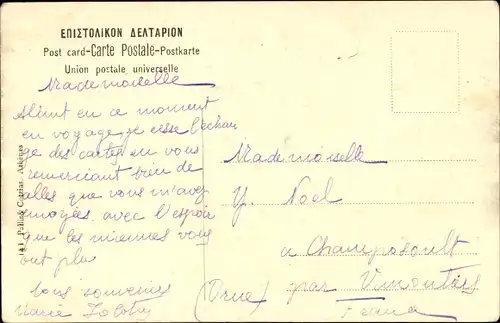 ΕΠΙΣΤΟΛΙΚΟΝ ΔΕΛΤΑΡΙΟΝ
Post card-Carte Postale-Postkarte
Union postale universelle
Mademoiselle
en ce moment
en voyage je cesse l'échan
ge des cartes en vous
remerciant bien de
celles que vous m'avez
envoyées avec l'espoir
que les miennes vous
ont plu
bons souvenirs
Marie
Mademoiselle
Y. Noel
à Champosoult
par Vimoutiers
(Orne)
141 Pallis & Cotzias Athènes